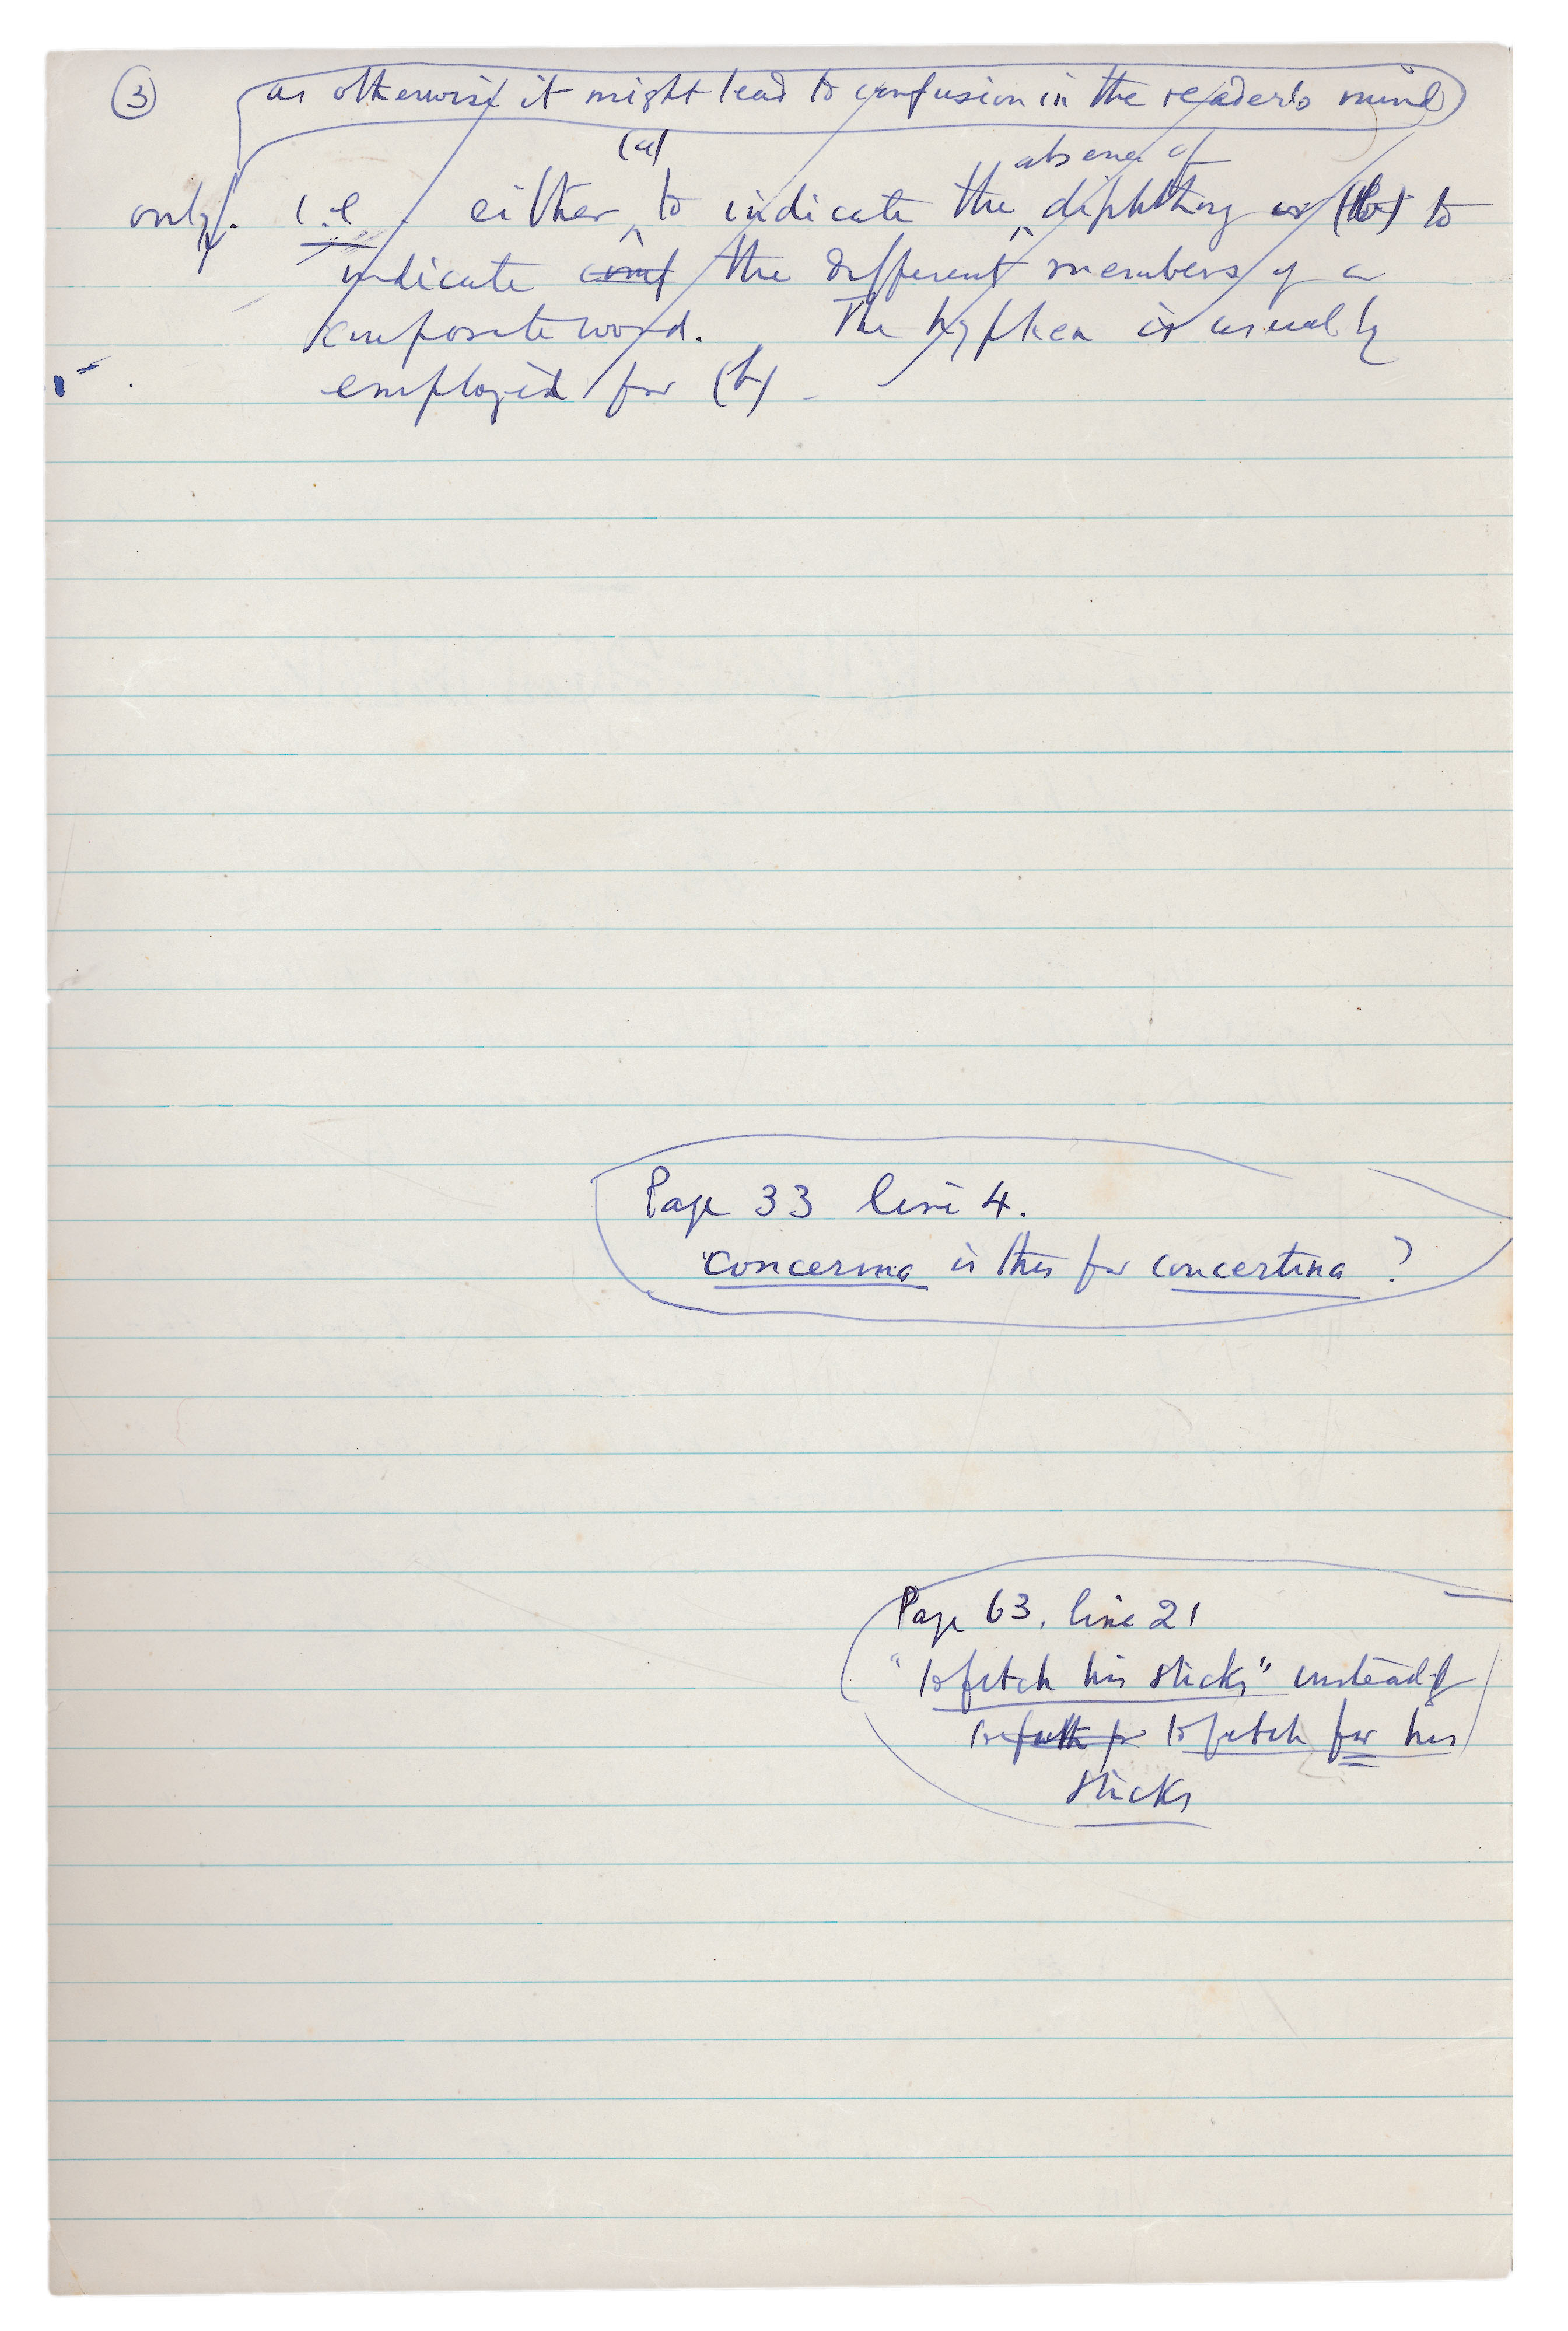 ③ as otherwise it might lead to confusion in the reader's mind
(a) absence of
only. i.e. either to indicate the diphthong or (b) to
indicate conf the different members of a
composite word. The hyphen is usually
employed for (b).
Page 33 line 4.
"concerina is this for concertina ?
Page 63, line 21
"to fetch his sticks" instead of
to fetch for to fetch for his
sticks